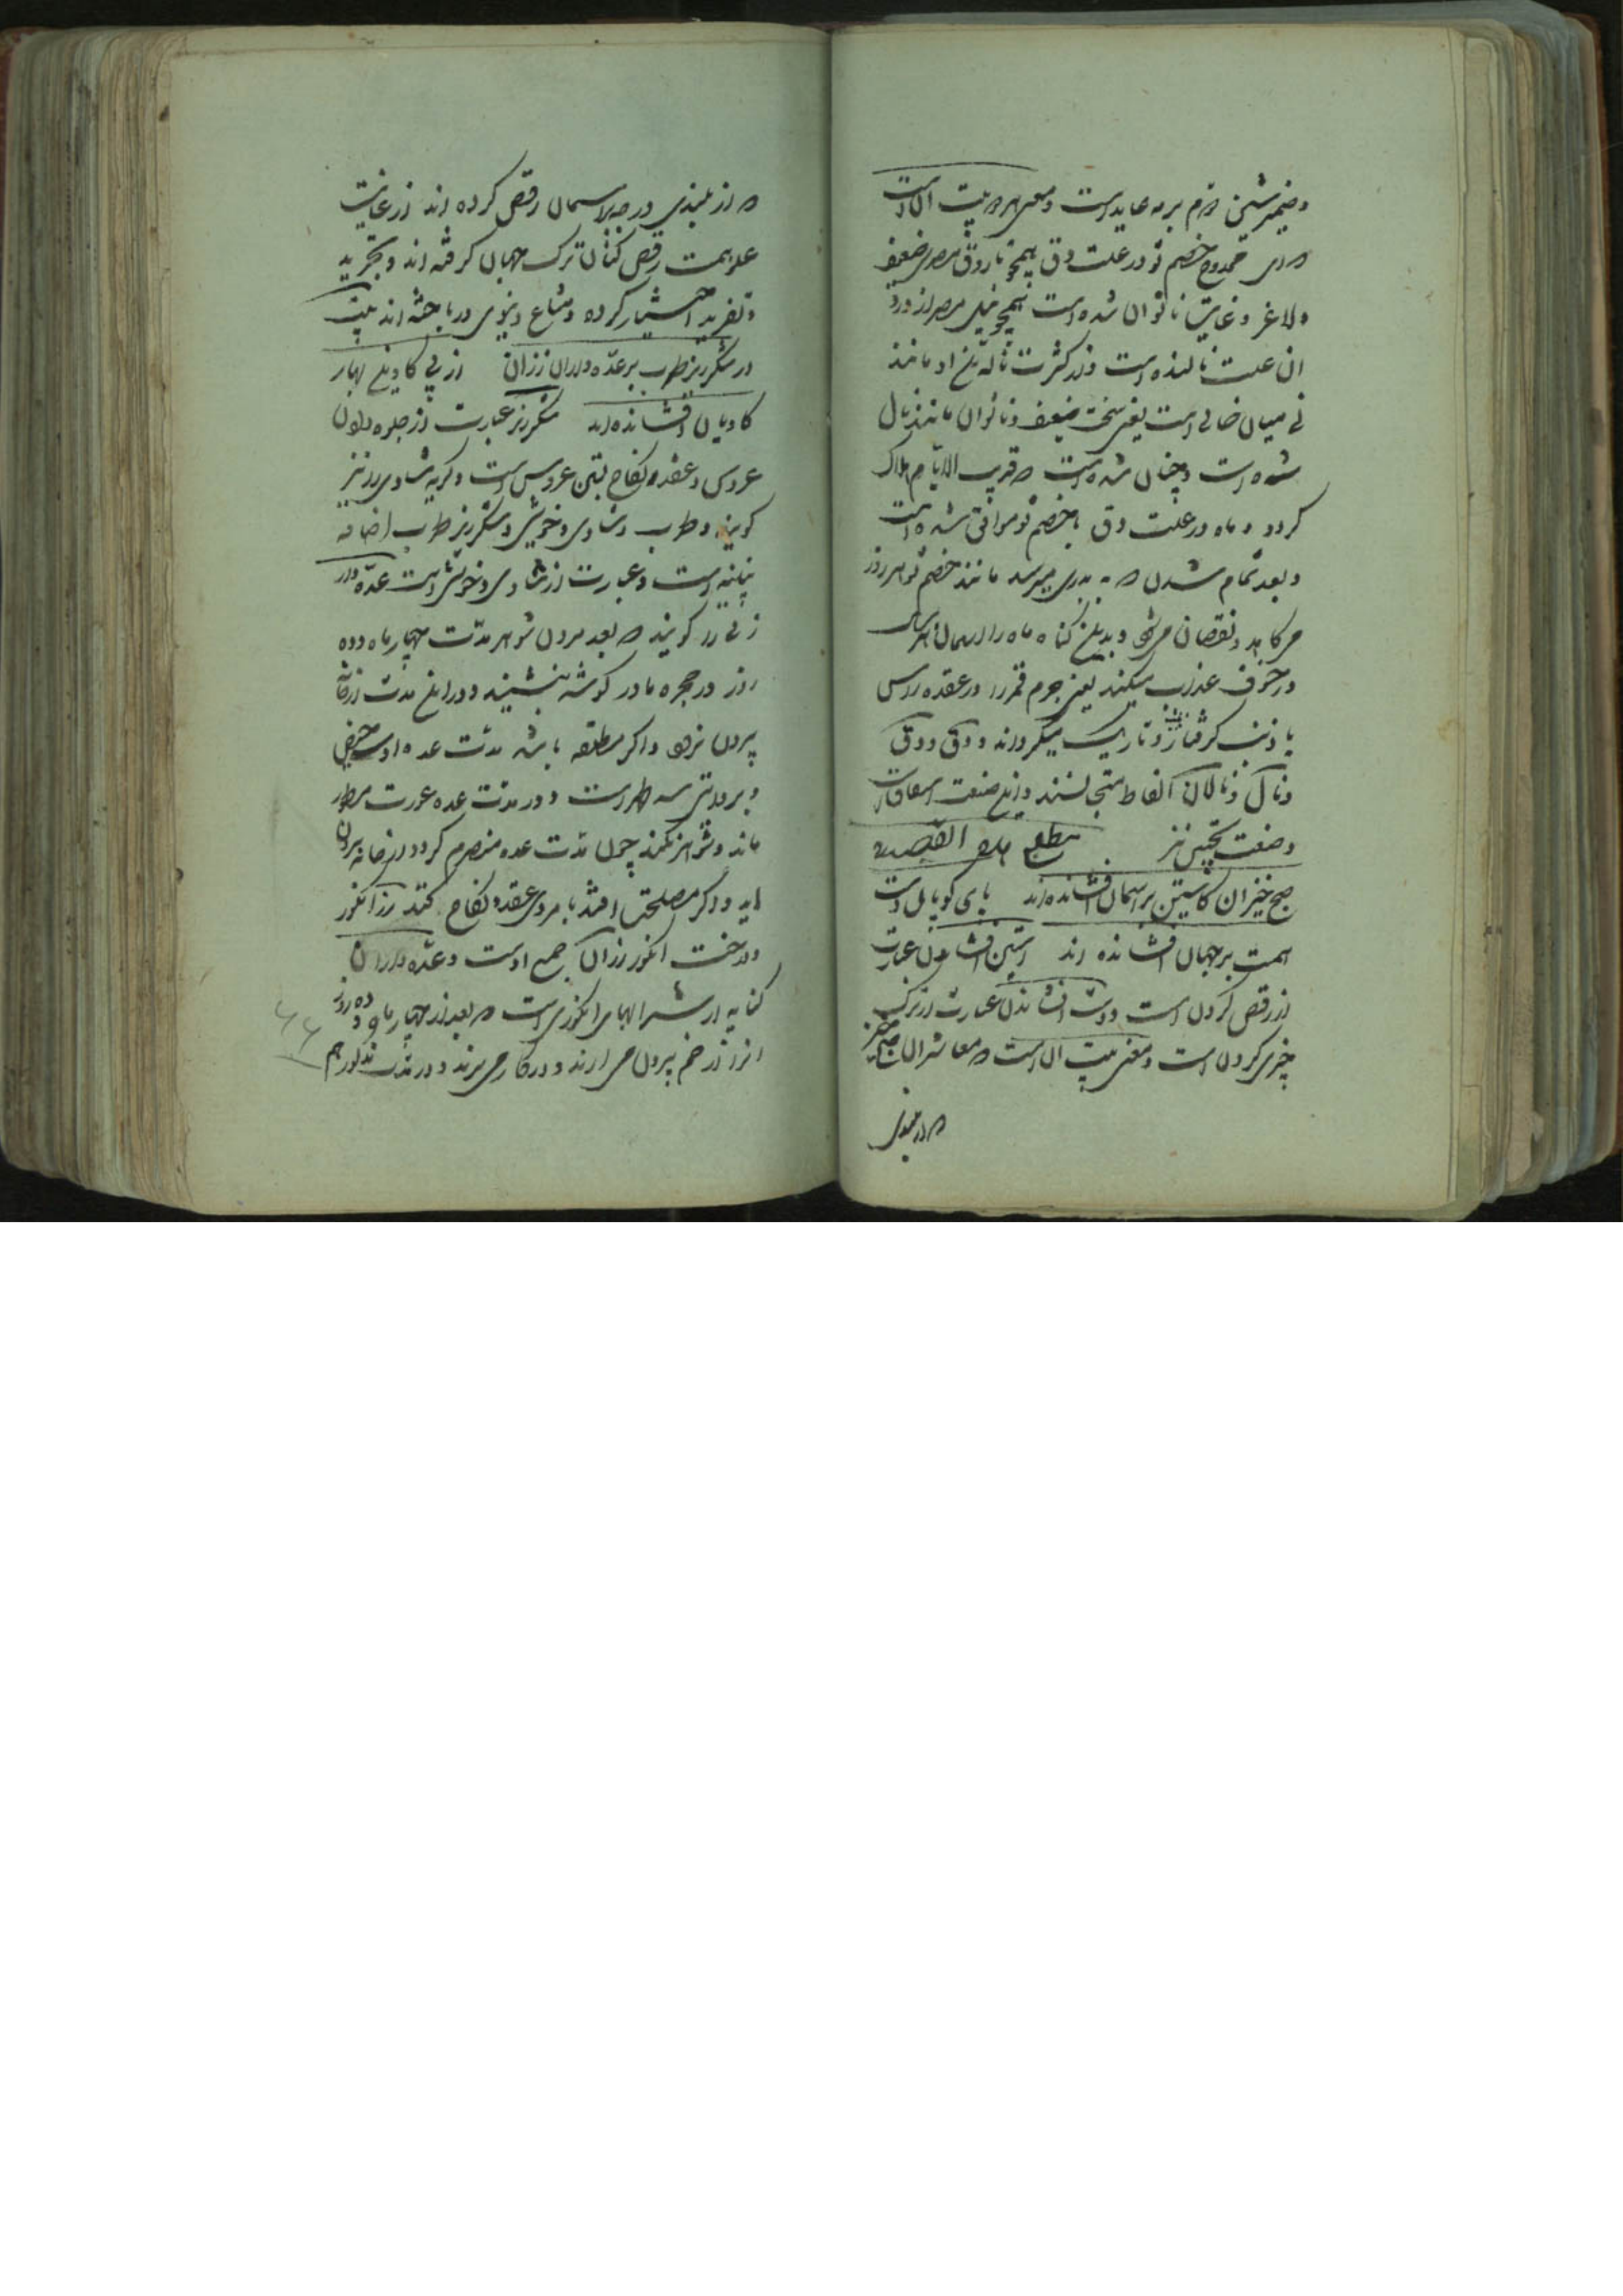 وضمیر شین دوم بر مه عاید است ومعنی هر دو بیت آن است
که ای ممدوح خصم تو در علت دق همچو ناروق مصری ضعیف
ولاغر وغایت ناتوان شده است همچو نیل مصر از درد
ان علت نالنده است واز کثرت ناله تن او مانند
نی میان خالی است یعنی سخت ضعیف وناتوان مانند نال
شده است وچنان شده است که قریب الایام هلاک
کردد وماه در علت دق با خصم تو موافق شده است
وبعد تمام شدن که به بدری میرسد مانند خصم تو هر روز
می کاهد ونقصان می شود وبدین کناه ماه را آسمان هر ماه
در خسوف عذاب میکند یعنی جرم قمر را در عقده راس
یا ذنب کرفتار وتاریک میکرداند ودق ودق
ونال ونالان الفاظ متجانسند واین صنعت اشتقاق است
وصنعت تجنیس نیز مطلع هذه القصیده
صبح خیزان کاستین بر آسمان افشانده اند پای کوبان دست
همت بر جهان افشانده اند آستین افشاندن عبارت
از رقص کردن است ودست افشاندن عبارت از ترک
چیزی کردن است ومعنی بیت آن است که معاشران صبح خیز
که از بلندی
که از بلندی درجه بر اسمان رقص کرده اند از غایت
علو همت رقص کنان ترک جهان کرفته اند وتجرید
وتفرید اختیار کرده ومتاع دنیوی در باخته اند بیت
در شکرریز طرب بر عده داران رزان از پی کاوین بهای
کاویان افشانده اند شکرریز عبارت از جلوه دادن
عروس وعقد ونکاح بستن عروس است وکریه شادی را نیز
کویند وطرب وشادی وخوشی وشکرریز طرب اضافه
بیانیه است وعبارت از شادی وخوشی است عده دار
زنی را کویند که بعد مردن شوهر مدت چهار ماه وده
روز در حجره مادر کوشه بنشیند ودر این مدت از خانه
بیرون نرود واکر مطلقه باشد مدت عده او سه حیض
وبروایتی سه طهر است ودر مدت عده عورت مستور
ماند وشوهر نکند چون مدت عده منصرم کردد از خانه بیرون
اید واکر مصلحت افتد با مردی عقد ونکاح کند رز انکور
ودرخت انکور رزان جمع اوست وعده داران
کنایه از شرابهای انکوری است که بعد از چهار ماه وده روز
انرا از خم بیرون می ارند ودر کار می برند ودر مدت مذکور هم